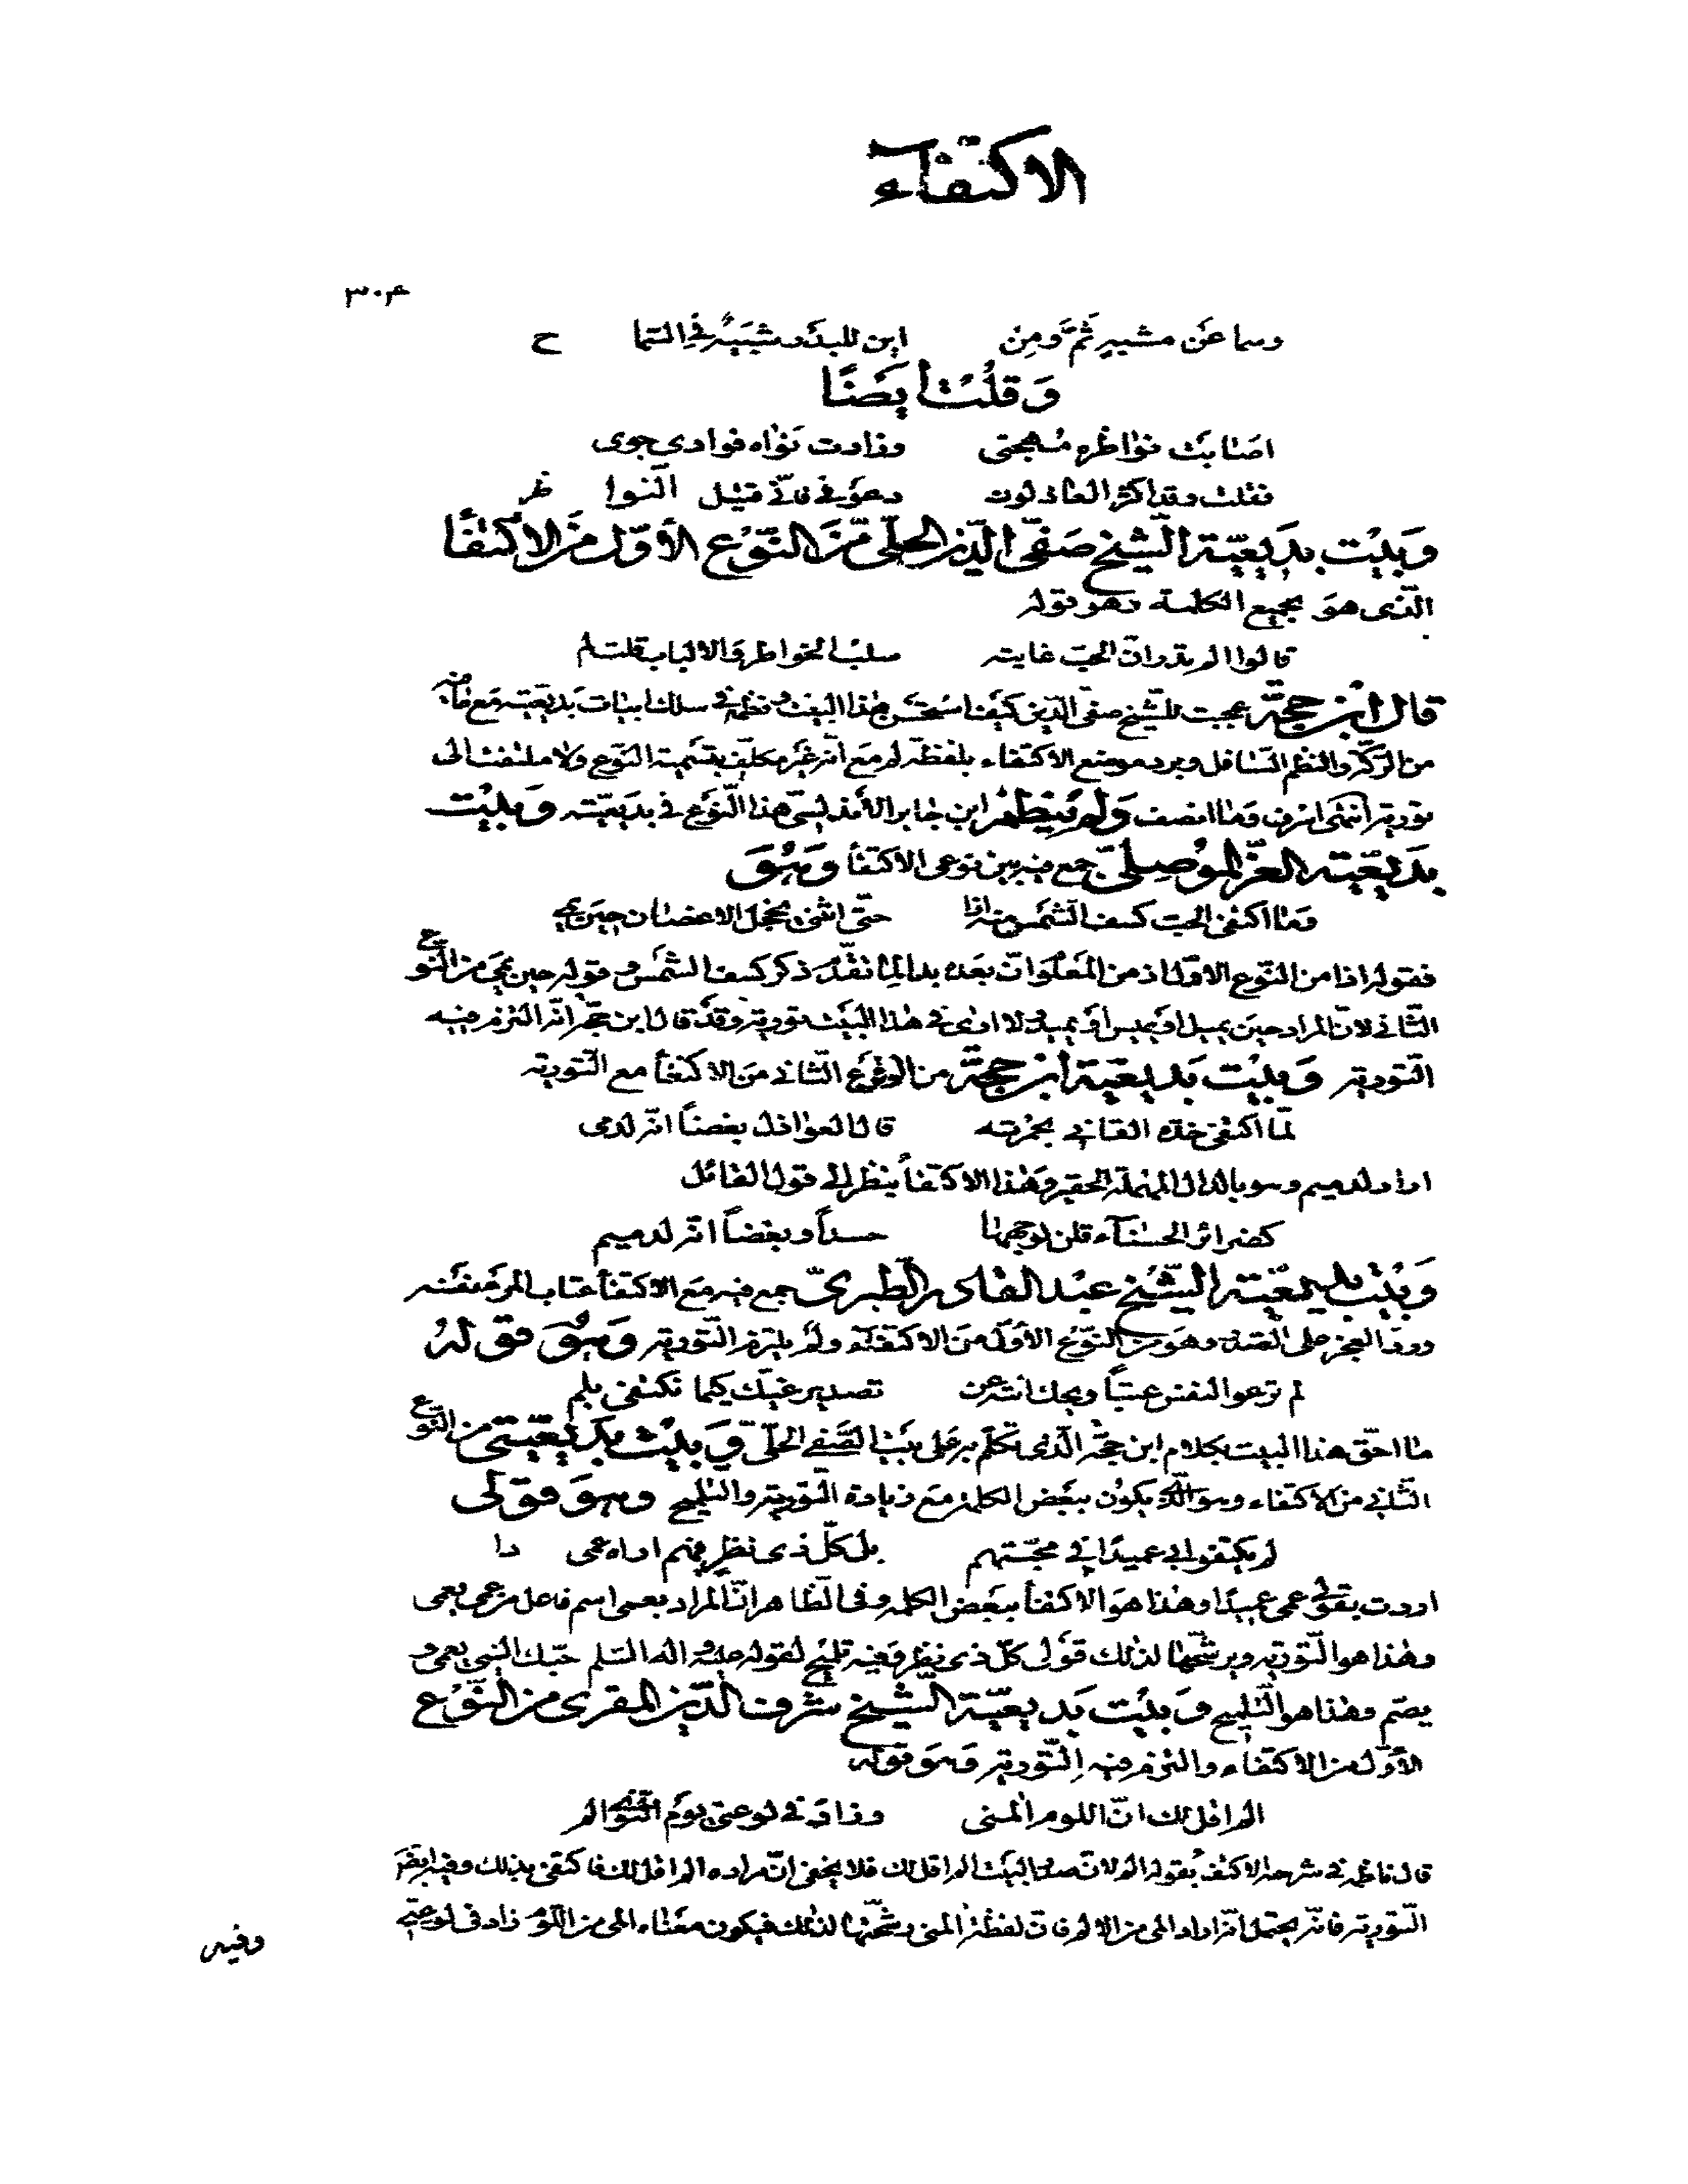 الاكتفاء
٣٠٤
وسما عن مشبه ثم ومن اين للبدر شبيه في السما ح
وقلت أيضا
اصابت نواظره مهجتي وزادت نواه فوادى جوى
فقلت وقد اكثر العاذلون دعوني فاني قتيل النوا ظر
وبيت بديعية الشيخ صفي الدين الحلي من النوع الأول من الاكتفا
الذى هو بجميع الكلمة وهو قوله
قالوا الم تدر ان الحب غايته سلب الخواطر والالباب قلت لم
قال ابن حجة عجبت للشيخ صفي الدين كيف استحسن هذا البيت ونظمه في سلك ابيات بديعيته مع ما فيه
من الركة والنظم السافل ويرد موضع الاكتفاء بلفظة لم مع انه غير مكلف بتسمية النوع ولا ملتفت الى
تورية انتهى وما انصف ولم ينظم ابن جابر الاندلسي هذا النوع في بديعيته وبيت
بديعية العز الموصلي جمع فيه بين نوعي الاكتفا وهو
وما اكتفى الحب كسف الشمس منه اذا حتى انثنى يخجل الاغصان حين يمي
فقوله اذا من النوع الاول اذ من المعلوم ان بعده بدا لما تقدم ذكر كسف الشمس وقوله حين يمي من النوع
الثاني لان المراد حين يميل او يميس او يميد ولا ارى في هذا البيت تورية وقد قال ابن حجة انه التزم فيه
التورية وبيت بديعية ابن حجة من النوع الثاني من الاكتفا مع التورية
لما اكتفى خده القاني بحمرته قال العواذل بغضا انه لدمى
اراد لدميم وهو بالدال المهملة الحقير وهذا الاكتفا ينظر الى قول القائل
كضرائر الحسناء قلن لوجهها حسدا وبغضا انه لدميم
وبيت بديعية الشيخ عبد القادر الطبري جمع فيه مع الاكتفا عتاب المرء نفسه
ورد العجز على الصدر وهو من النوع الأول من الاكتفاء ولم يلتزم التورية وهو قوله
لم ترعو النفس عتبا ويحك انت عن تصدير غيك كيما تكتفى بلم
ما احق هذا البيت بكلام ابن حجة الذى تكلم به على بيت الصفي الحلي وبيت بديعيتي من النوع
الثاني من الاكتفاء وهو الذي يكون ببعض الكلمة مع زيادة التورية والتلميح وهو قولى
لم يكتفوا بي عميدا في محبتهم بل كل ذى نظر فيهم اراه عمى دا
اردت بقولي عمى عميدا وهذا هو الاكتفا ببعض الكلمة وفي الظاهر ان المراد بعمى اسم فاعل من عمى يعمى
وهذا هو التورية ويرشحها لذلك قولى كل ذى نظر وفيه تلميح لقوله عليه واله السلم حبك الشي يعمى و
يصم وهذا هو التلميح وبيت بديعية الشيخ شرف الدين المقرى من النوع
الأول من الاكتفاء والتزم فيه التورية وهو قوله
الم اقل لك ان اللوم المنى وزاد في لوعتي يوم النوى الم
قال ناظمه في شرحه الاكتفا بقوله الم لان صدر البيت الم اقل لك فلا يخفى ان مراده الم اقل لك فاكتفى بذلك وفيه ايضا
التورية فانه يحتمل انه اراد الم من الالم فان لفظة المنى رشحتها لذلك فيكون معناه الم من اللوم زاد في لوعتي
وفيه